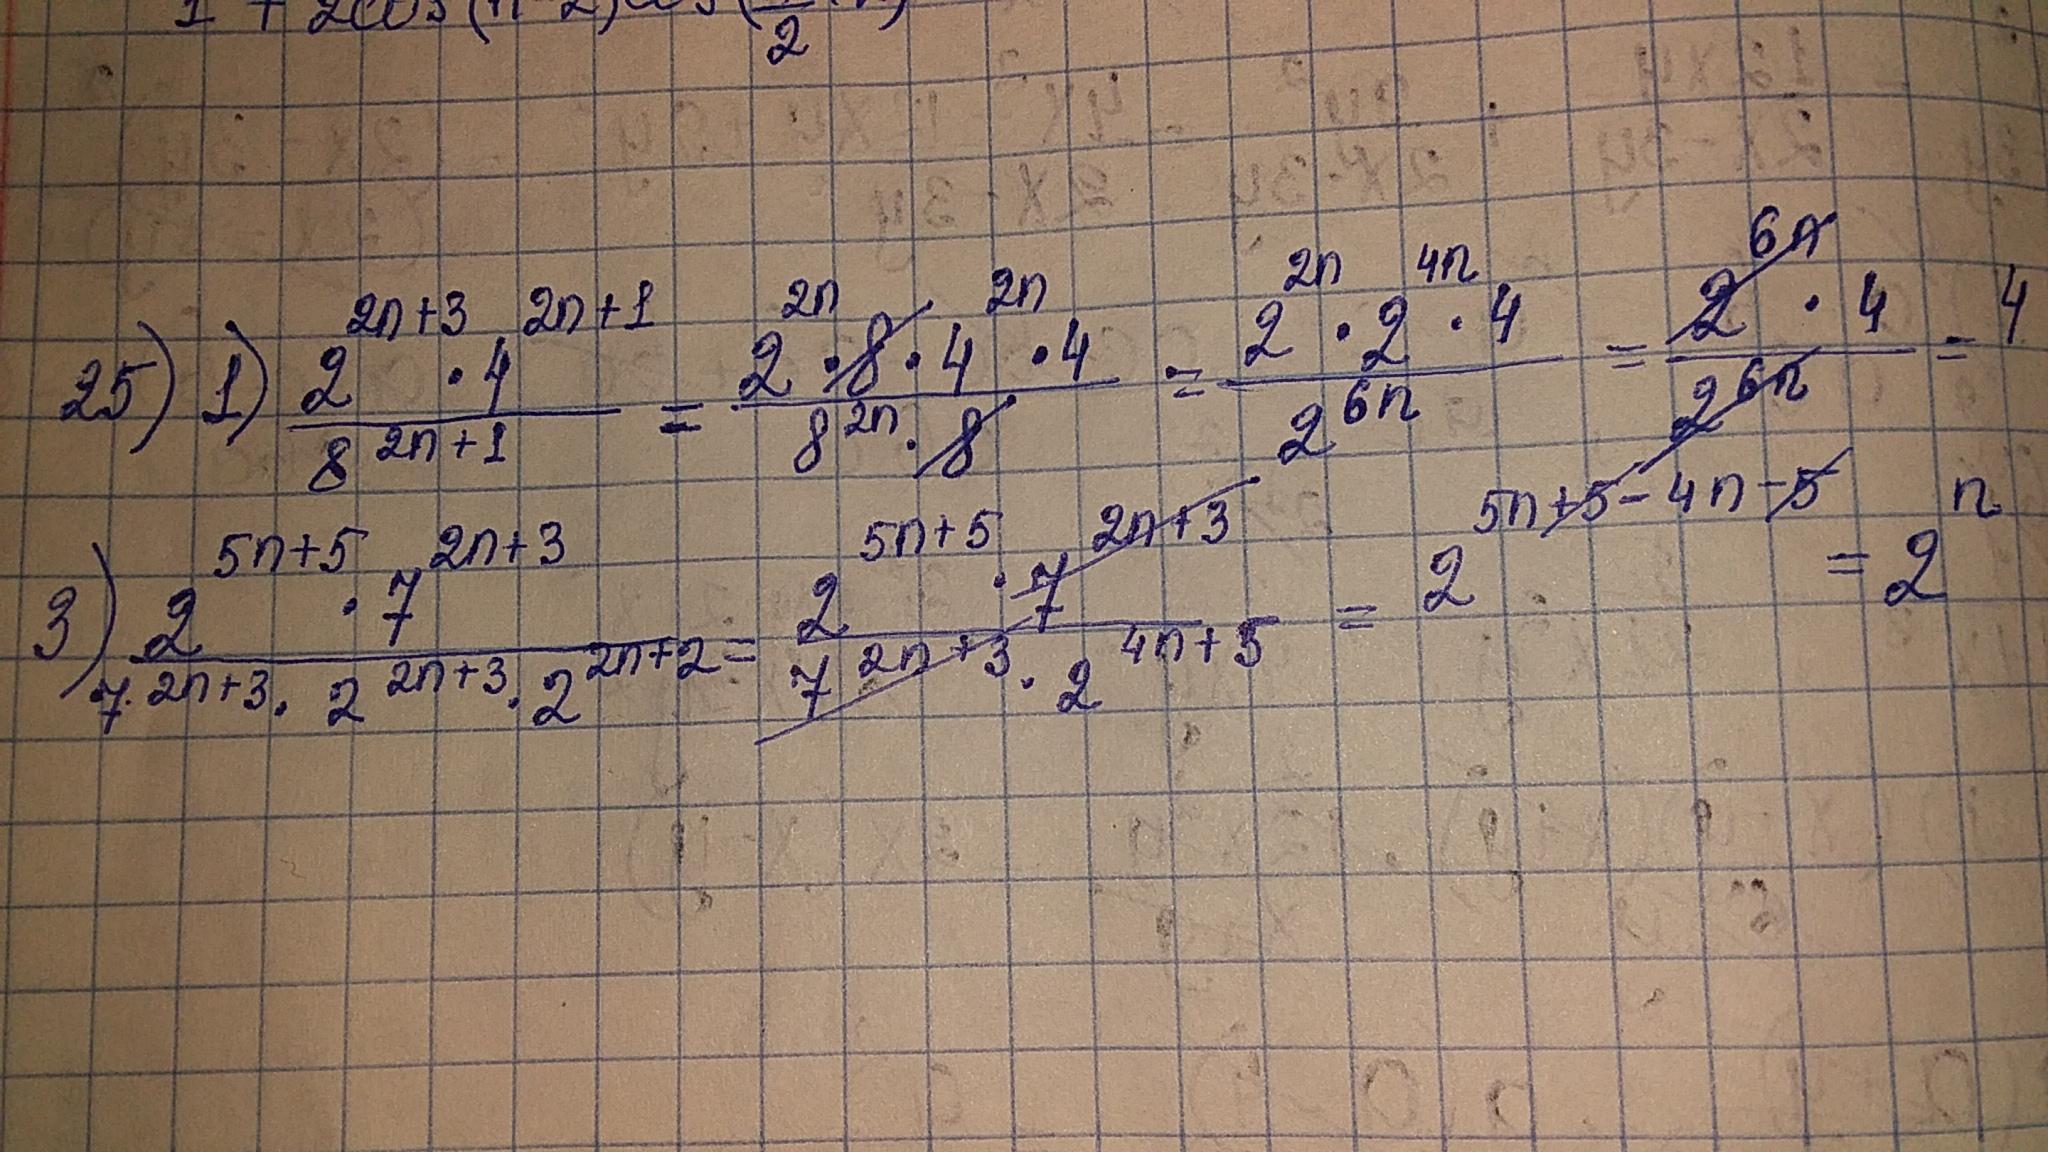 1 + 2cos(π-2)cos(
2
25) 1) 2^{2n+3} · 4^{2n+1} / 8^{2n+1} = 2^{2n} · 8 · 4^{2n} · 4 / 8^{2n} · 8 = 2^{2n} · 2^{4n} · 4 / 2^{6n} = 2^{6n} · 4 / 2^{6n} = 4
3) 2^{5n+5} · 7^{2n+3} / 7^{2n+3} · 2^{2n+3} · 2^{2n+2} = 2^{5n+5} · 7^{2n+3} / 7^{2n+3} · 2^{4n+5} = 2^{5n+5-4n-5} = 2^{n}